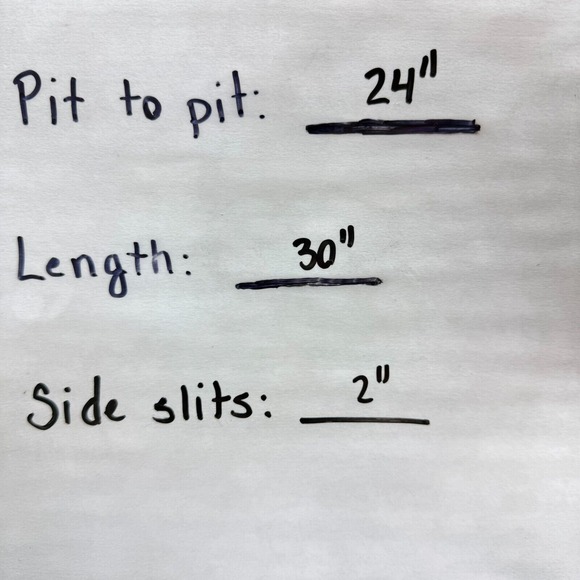 Pit to pit: 24"
Length: 30"
Side slits: 2"